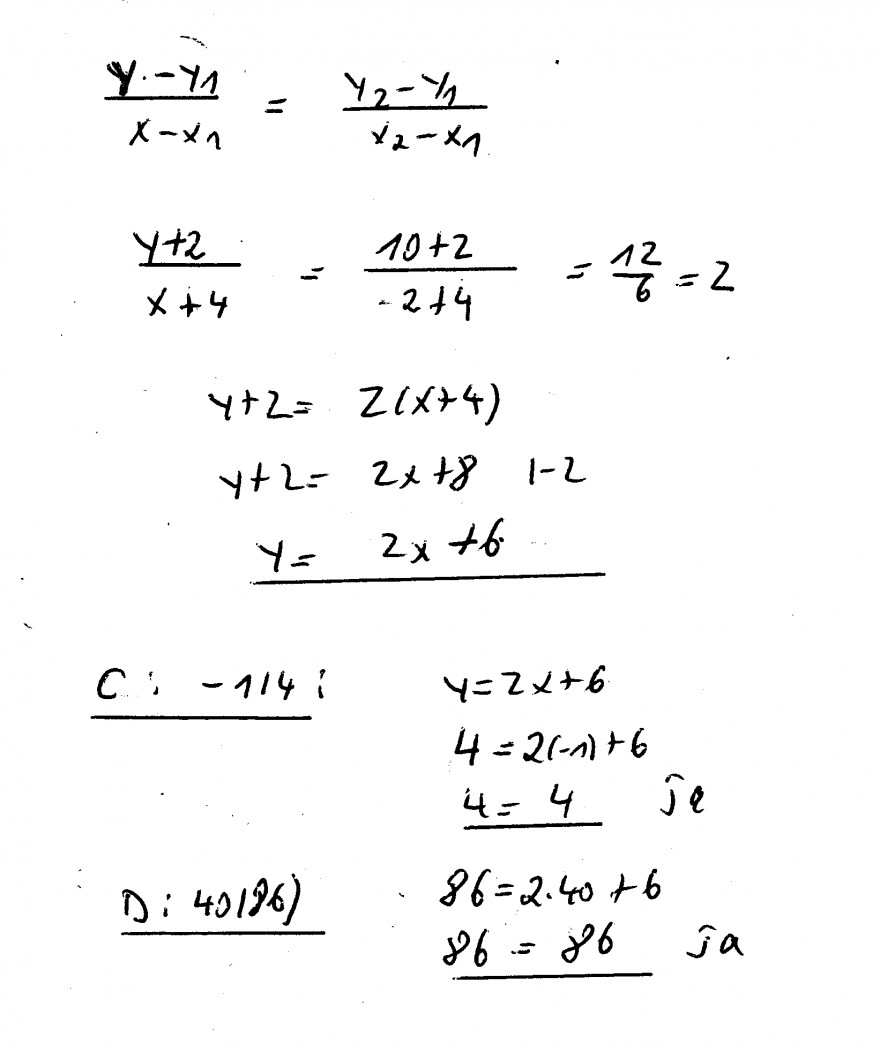 y - y1 / x - x1 = y2 - y1 / x2 - x1
y+2 / x+4 = 10+2 / -2+4 = 12/6 = 2
y+2 = 2(x+4)
y+2 = 2x+8 |-2
y = 2x+6
C: -1/4: y=2x+6
4=2(-1)+6
4=4 ja
D: 40/86) 86=2·40+6
86=86 ja